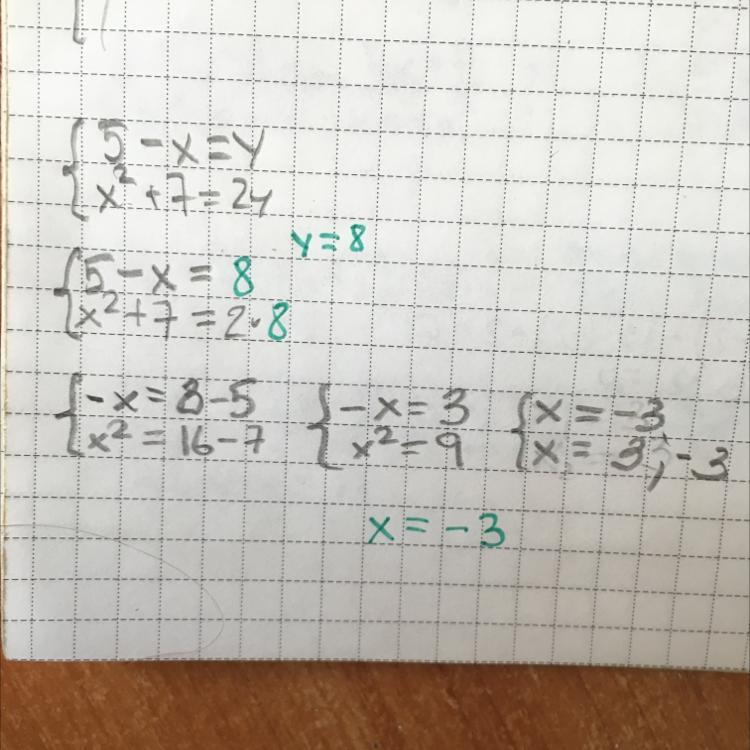 5 - x = y
x² + 7 = 2y
y = 8
5 - x = 8
x² + 7 = 2 · 8
-x = 8 - 5
x² = 16 - 7
-x = 3
x² = 9
x = -3
x = 3; -3
x = -3